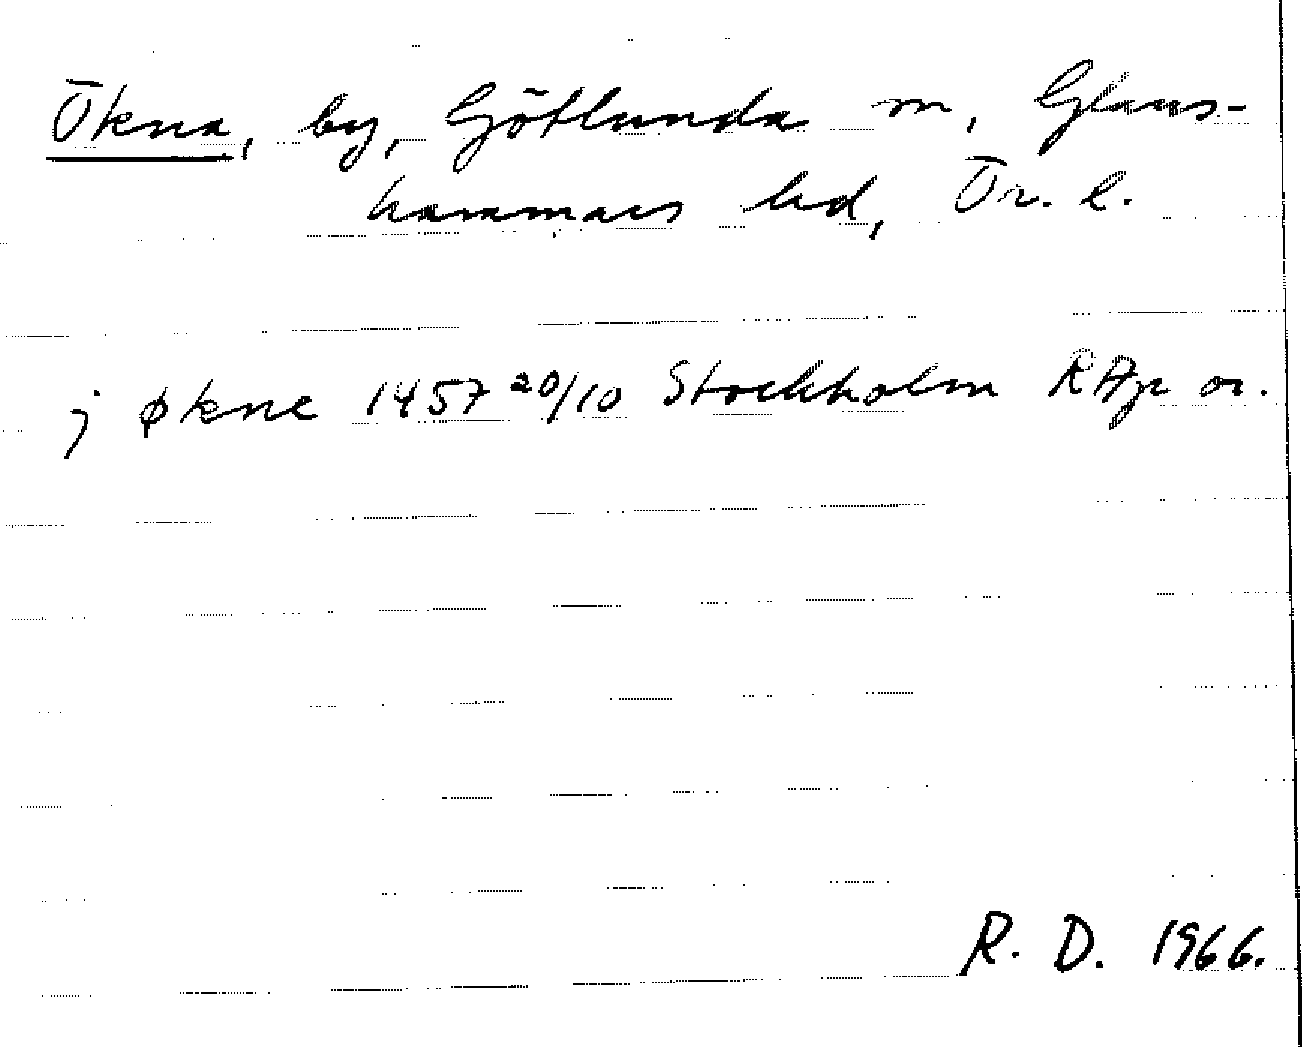 Ökna, by, Götlunda sn, Glans-
hammars hd, Ör. l.
j økne 1457 20/10 Stockholm RAp or.
R. D. 1966.